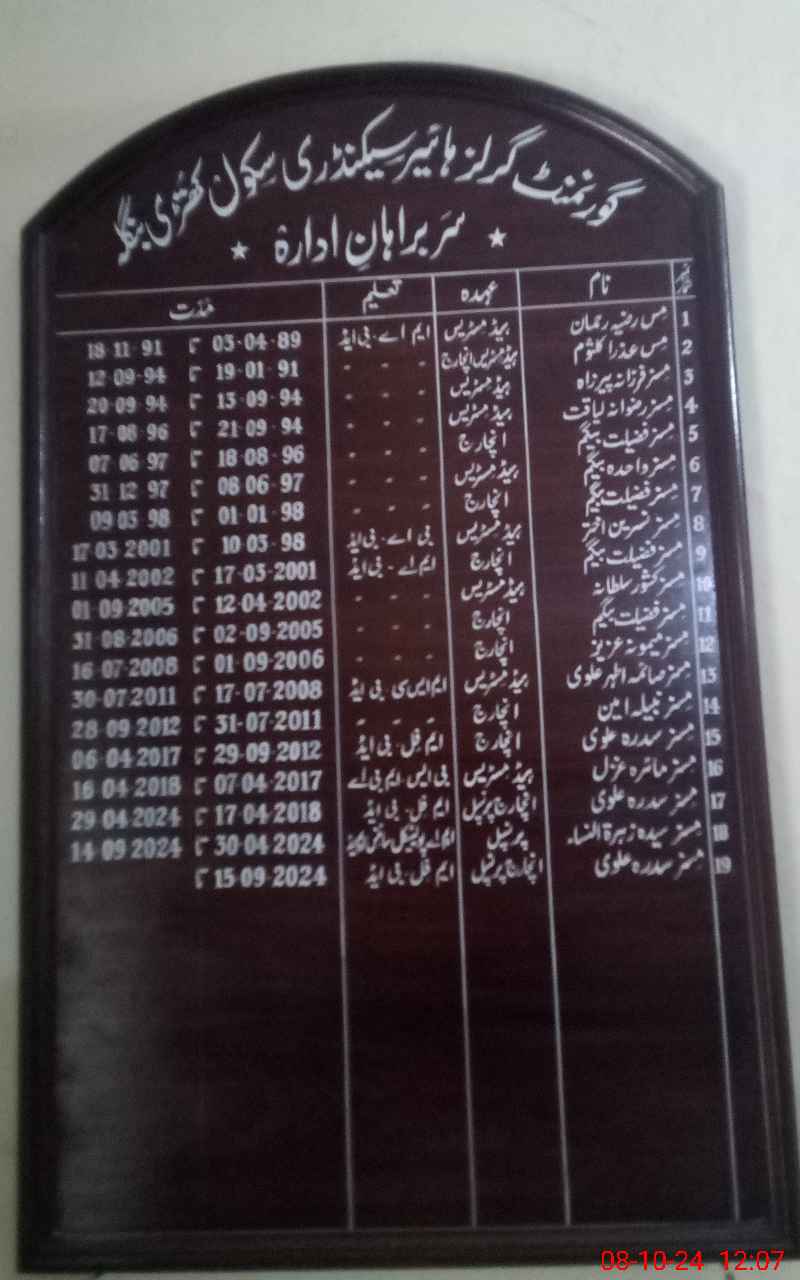 گورنمنٹ گرلز ہائیر سیکنڈری سکول کھتڑی بنگلہ
★ سربراہانِ ادارہ ★
نمبر شمار نام عہدہ تعلیم مدّت
1 مس رضیہ رحمان ہیڈ مسٹریس ایم اے۔بی ایڈ 03-04-89 تا 18-11-91
2 مس عذرا کلثوم ہیڈ مسٹریس انچارج - - - 19-01-91 تا 12-09-94
3 مسز فرزانہ پیرزاہ ہیڈ مسٹریس - - - 13-09-94 تا 20-09-94
4 مسز رضوانہ لیاقت ہیڈ مسٹریس - - - 21-09-94 تا 17-08-96
5 مسز فضیلت بیگم انچارج - - - 18-08-96 تا 07-06-97
6 مسز واحدہ بیگم ہیڈ مسٹریس - - - 08-06-97 تا 31-12-97
7 مسز فضیلت بیگم انچارج - - - 01-01-98 تا 09-03-98
8 مسز نسرین اختر ہیڈ مسٹریس بی اے۔بی ایڈ 10-03-98 تا 17-03-2001
9 مسز فضیلت بیگم انچارج ایم اے۔بی ایڈ 17-03-2001 تا 11-04-2002
10 مسز کشور سلطانہ ہیڈ مسٹریس - - - 12-04-2002 تا 01-09-2005
11 مسز فضیلت بیگم انچارج - - - 02-09-2005 تا 31-08-2006
12 مسز میمونہ عزیز انچارج - - - 01-09-2006 تا 16-07-2008
13 مسز صائمہ اطہر علوی ہیڈ مسٹریس ایم ایس سی۔بی ایڈ 17-07-2008 تا 30-07-2011
14 مسز نبیلہ امین انچارج - - - 31-07-2011 تا 28-09-2012
15 مسز سدرہ علوی انچارج ایم فل۔بی ایڈ 29-09-2012 تا 06-04-2017
16 مسز مائرہ غزل ہیڈ مسٹریس بی ایس۔ایم بی اے 07-04-2017 تا 16-04-2018
17 مسز سدرہ علوی انچارج پرنسپل ایم فل۔بی ایڈ 17-04-2018 تا 29-04-2024
18 مسز سیدہ زہرۃ النساء پرنسپل ایم اے پولیٹیکل سائنس 30-04-2024 تا 14-09-2024
19 مسز سدرہ علوی انچارج پرنسپل ایم فل۔بی ایڈ 15-09-2024 تا
08-10-24 12:07